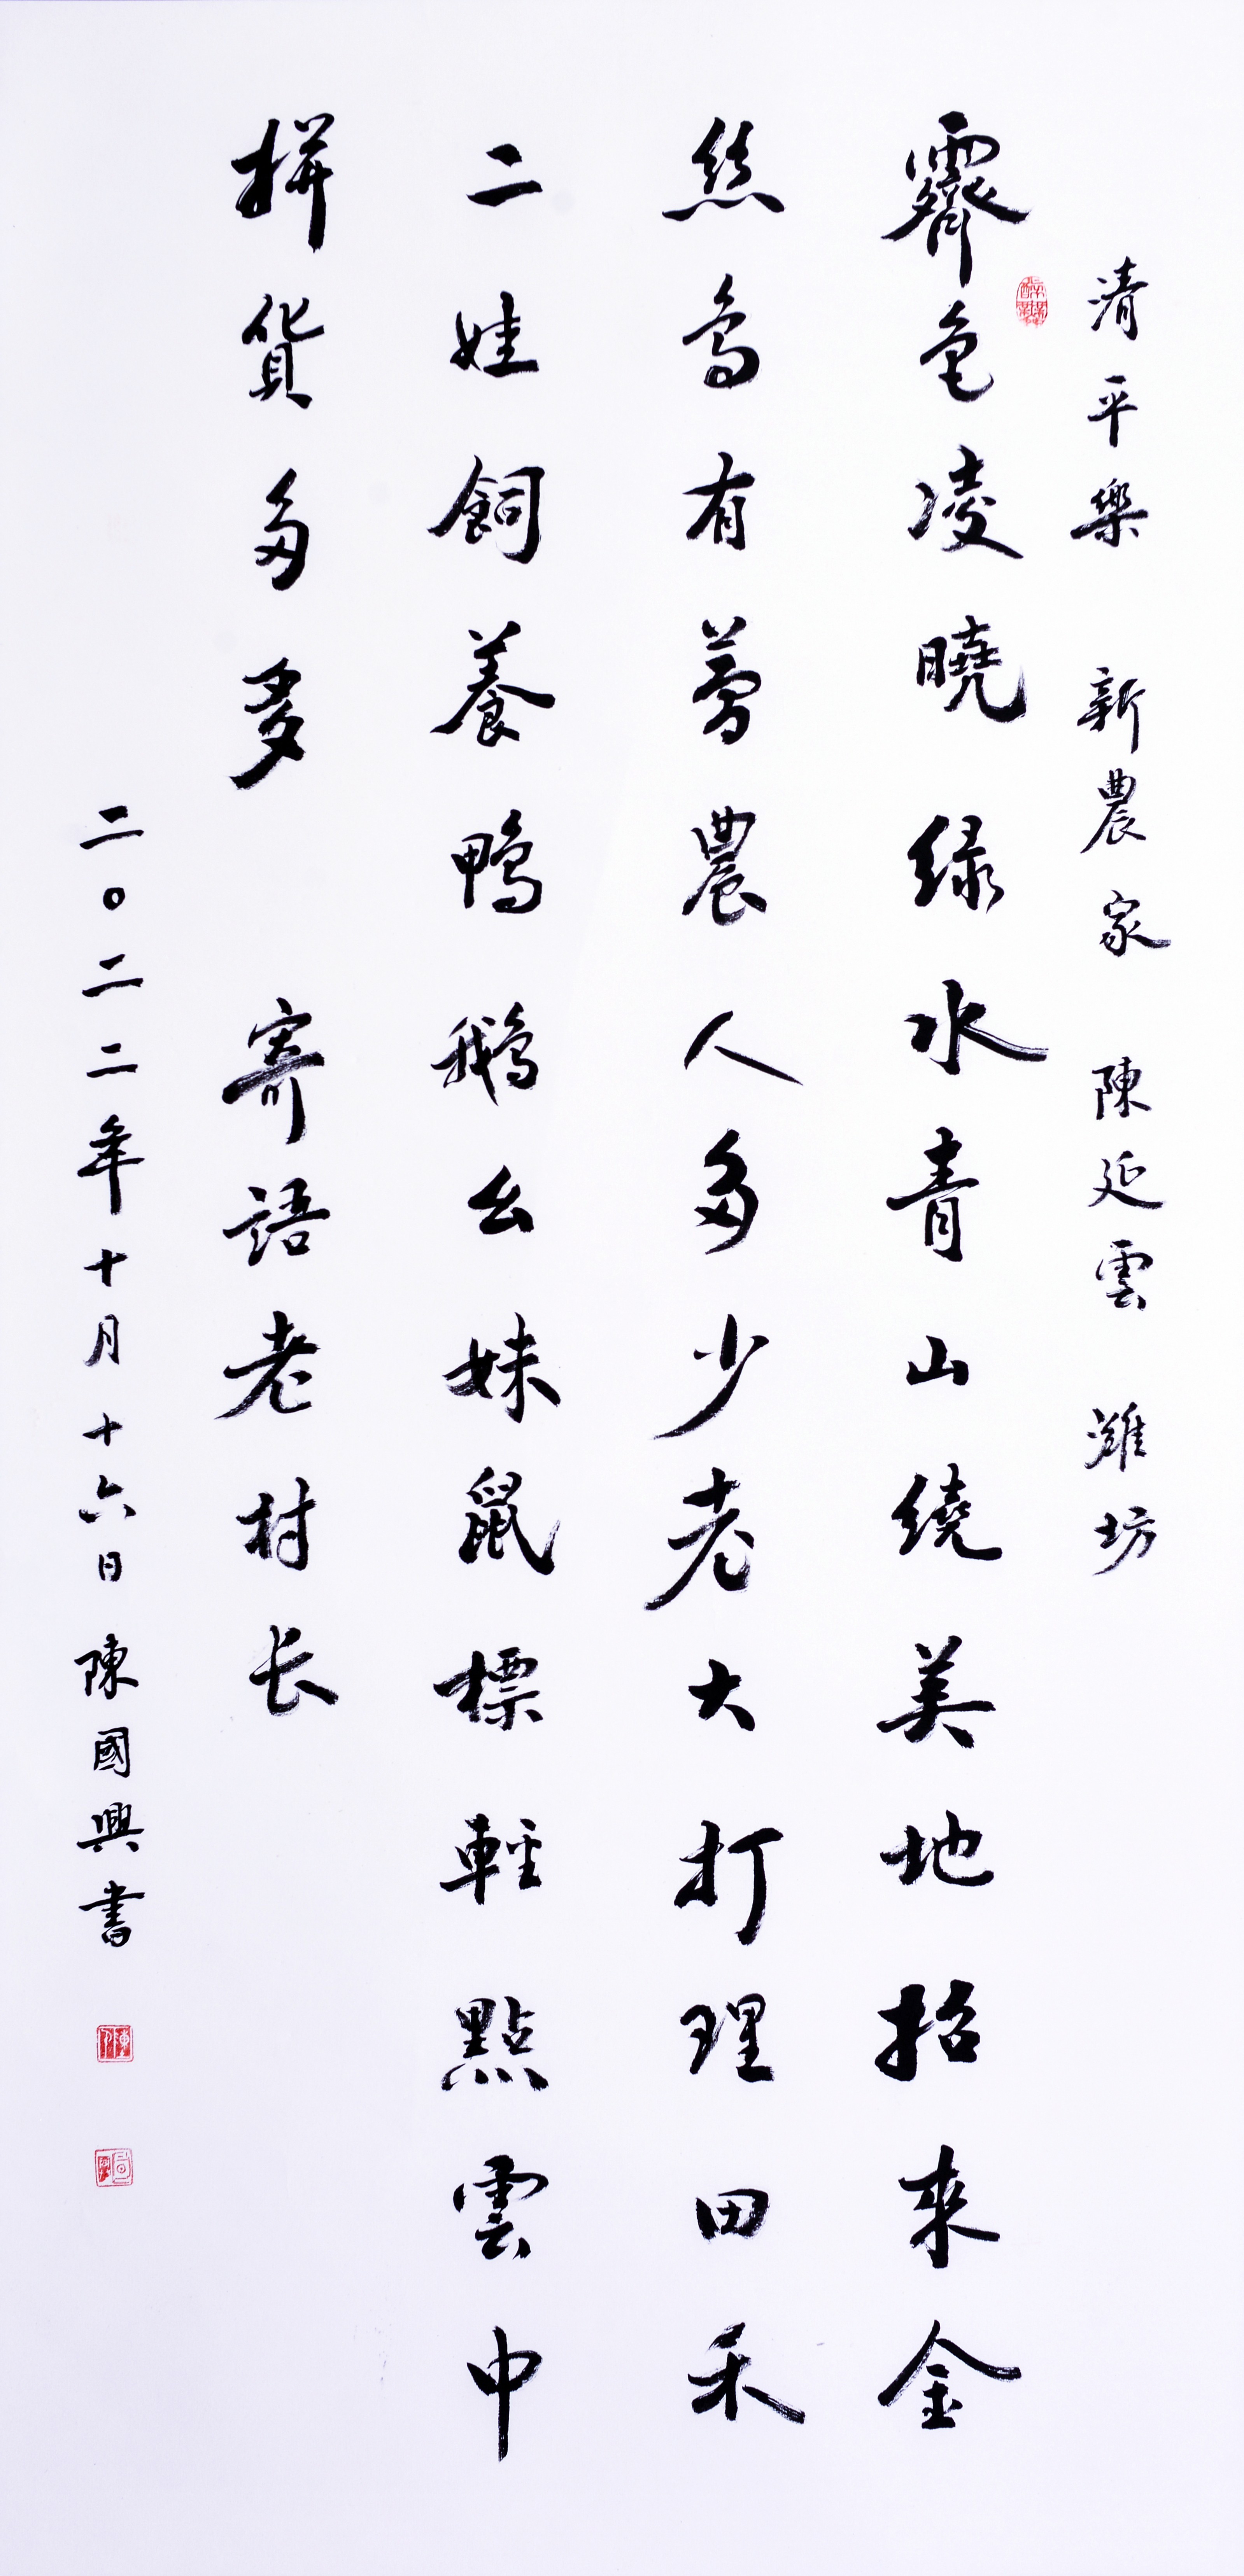 清平樂 新農家 陳延雲 濰坊
霽色凌曉绿水青山繞美地招來金
絲鳥有夢農人多少老大打理田禾
二娃飼養鴨鵝幺妹鼠標輕點雲中
拼貨多多 寄語老村长
二〇二二年十月十六日陳國興書